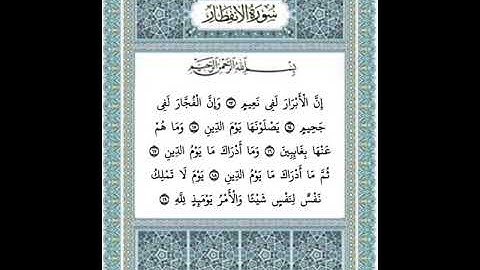 سُورَةُ الِانفِطَارِ
بِسْمِ اللَّهِ الرَّحْمَٰنِ الرَّحِيمِ
إِنَّ الْأَبْرَارَ لَفِي نَعِيمٍ ﴿١٣﴾ وَإِنَّ الْفُجَّارَ لَفِي
جَحِيمٍ ﴿١٤﴾ يَصْلَوْنَهَا يَوْمَ الدِّينِ ﴿١٥﴾ وَمَا هُمْ
عَنْهَا بِغَائِبِينَ ﴿١٦﴾ وَمَا أَدْرَاكَ مَا يَوْمُ الدِّينِ ﴿١٧﴾
ثُمَّ مَا أَدْرَاكَ مَا يَوْمُ الدِّينِ ﴿١٨﴾ يَوْمَ لَا تَمْلِكُ
نَفْسٌ لِنَفْسٍ شَيْئًا وَالْأَمْرُ يَوْمَئِذٍ لِلَّهِ ﴿١٩﴾